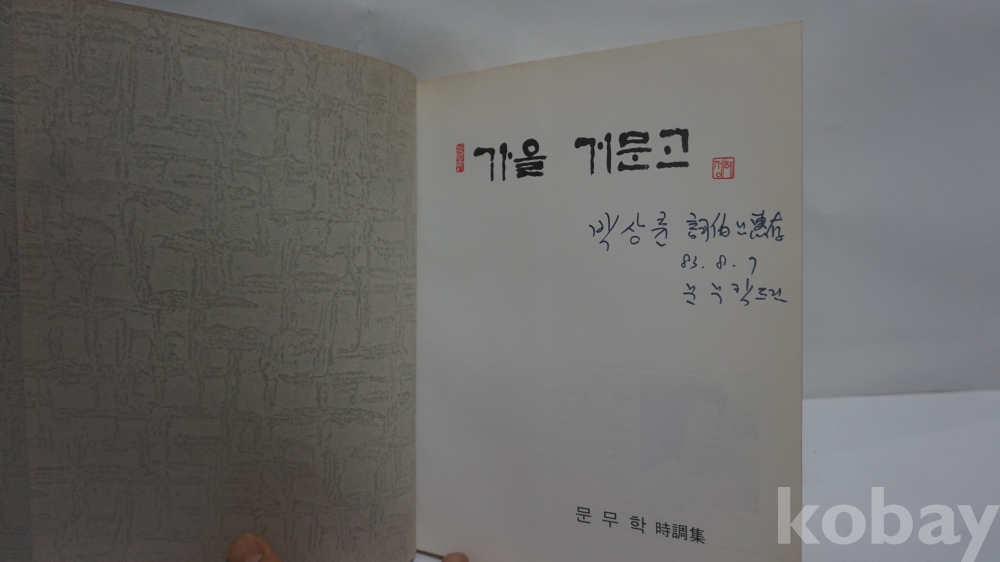 가을 거문고
박상륜 詞伯 惠存
83. 8. 9
문무학 드림
문무학 時調集
kobay